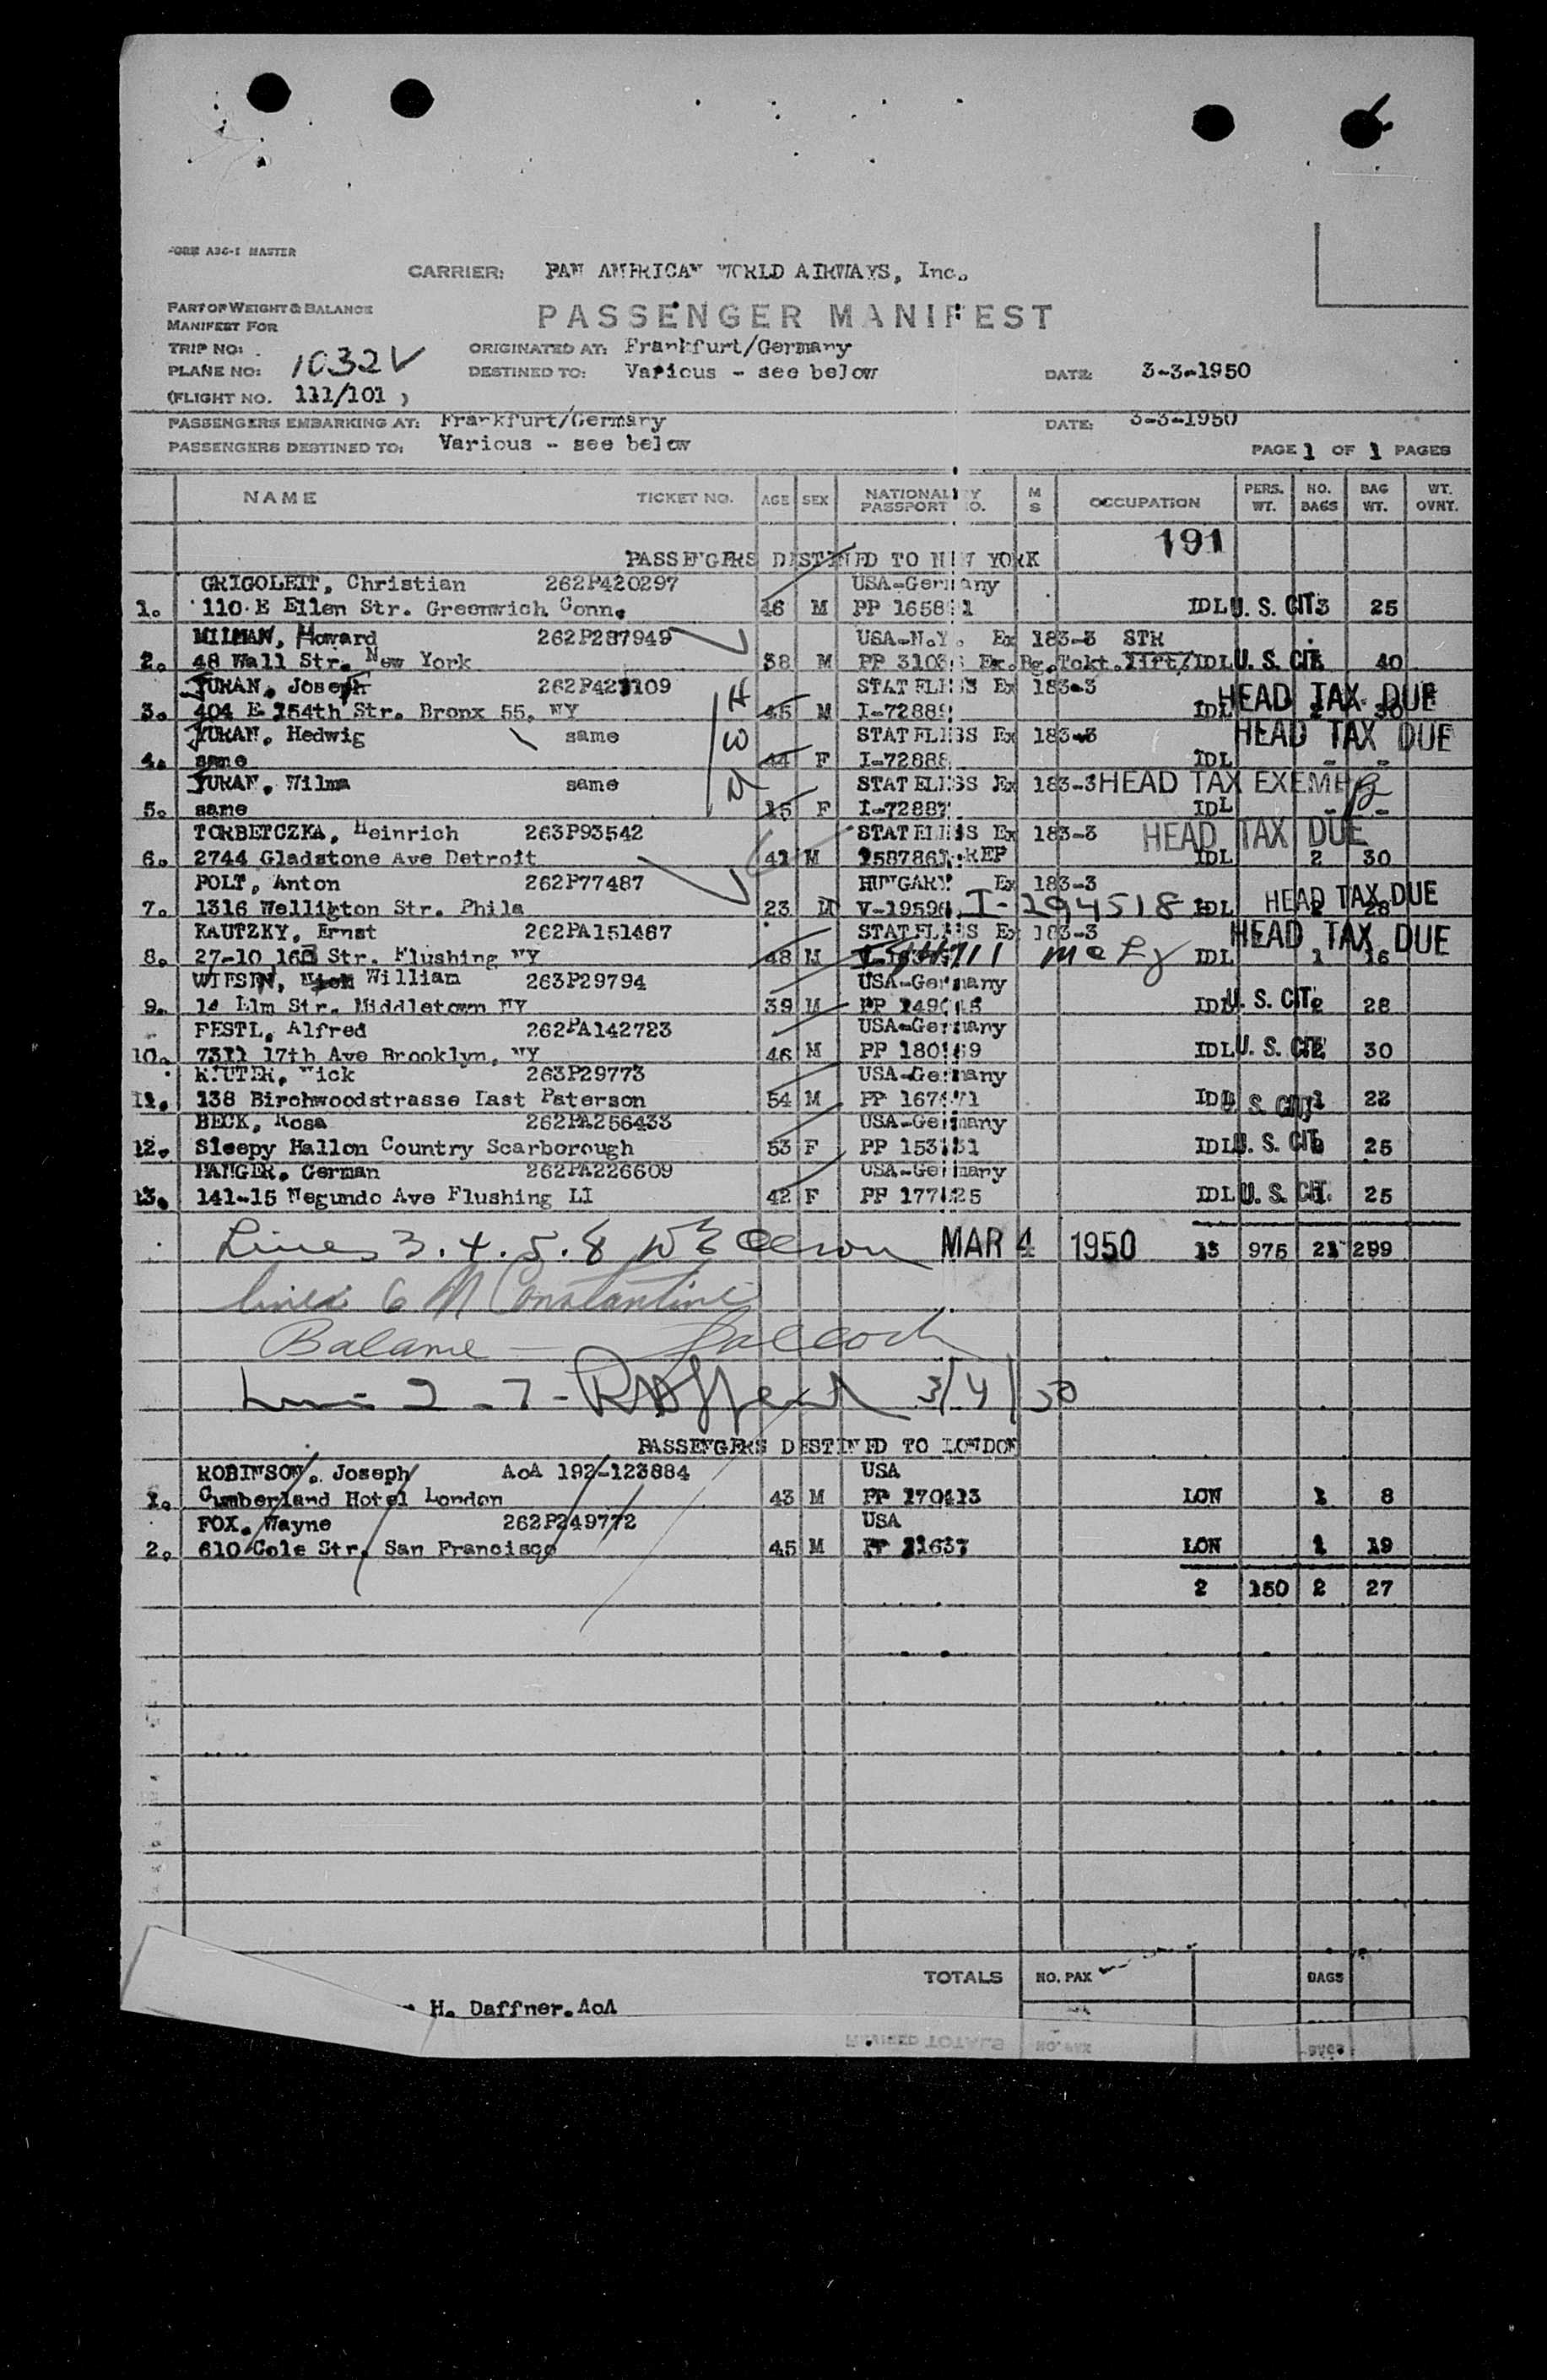 FORM A36-1 MASTER
CARRIER: PAN AMERICAN WORLD AIRWAYS, Inc.
PART OF WEIGHT & BALANCE
MANIFEST FOR
PASSENGER MANIFEST
TRIP NO: ORIGINATED AT: Frankfurt/Germany
PLANE NO: 1032V DESTINED TO: Various - see below DATE: 3-3-1950
(FLIGHT NO. 111/101 )
PASSENGERS EMBARKING AT: Frankfurt/Germany DATE: 3-3-1950
PASSENGERS DESTINED TO: Various - see below PAGE 1 OF 1 PAGES
NAME TICKET NO. AGE SEX NATIONALITY PASSPORT NO. M S OCCUPATION PERS. WT. NO. BAGS BAG WT. WT. OVNT.
191
PASSENGERS DESTINED TO NEW YORK
GRIGOLEIT, Christian 262P420297 USA-Germany
1. 110 E Ellen Str. Greenwich Conn. 46 M PP 1658 1 IDL U. S. CIT 3 25
MILMAN, Howard 262P287949 USA-N.Y. Ex 183-3 STR
2. 48 Wall Str. New York 38 M PP 3103 Ex.Bg.Tckt.lift/IDL U. S. CIT 40
JURAN, Joseph 262P421109 STATELESS Ex 183-3
3. 404 E 154th Str. Bronx 55, NY 45 M I-7288 IDL HEAD TAX DUE
JURAN, Hedwig same STATELESS Ex 183-3 HEAD TAX DUE
4. same 44 F I-72888 IDL - -
JURAN, Wilma same STATELESS Ex 183-3 HEAD TAX EXEMPT
5. same 15 F I-72887 IDL - -
TORBETCZKA, Heinrich 263P93542 STATELESS Ex 183-3 HEAD TAX DUE
6. 2744 Gladstone Ave Detroit 41 M REP IDL 2 30
POLT, Anton 262P77487 HUNGARY Ex 183-3
7. 1316 Wellington Str. Phila 23 M V-1959 I-294518 IDL HEAD TAX DUE 28
KAUTZKY, Ernst 262PA151467 STATELESS Ex 183-3 HEAD TAX DUE
8. 27-10 Str. Flushing NY 48 M IDL 1 16
WIESEN, William 263P29794 USA-Germany
9. Elm Str. Middletown NY 39 M PP IDL U. S. CIT. 2 28
FESTL, Alfred 262PA142723 USA-Germany
10. 7311 17th Ave Brooklyn, NY 46 M PP 180 69 IDL U. S. CIT. 30
Nick 263P29773 USA-Germany
11. 138 Birchwoodstrasse East Paterson 54 M PP 167 71 IDL U. S. CIT. 1 22
BECK, Rosa 262PA256433 USA-Germany
12. Sleepy Hallon Country Scarborough 53 F PP 153 51 IDL U. S. CIT. 25
German 262PA226609 USA-Germany
13. 141-15 Negundo Ave Flushing LI 42 F PP 177 25 IDL U. S. CIT. 25
Lines 3. 4. 5. 8 MAR 4 1950 13 975 21 299
lines 6 M Constantine
Balance -
Line 2 - 7 - 3/4/50
PASSENGERS DESTINED TO LONDON
ROBINSON, Joseph AoA 192-123884 USA
1. Cumberland Hotel London 43 M PP 170413 LON 1 8
FOX, Wayne 262P249772 USA
2. 610 Cole Str. San Francisco 45 M PP 21637 LON 1 19
2 150 2 27
TOTALS NO. PAX BAGS
H. Daffner.AoA
REVISED TOTALS NO. PAX BAGS